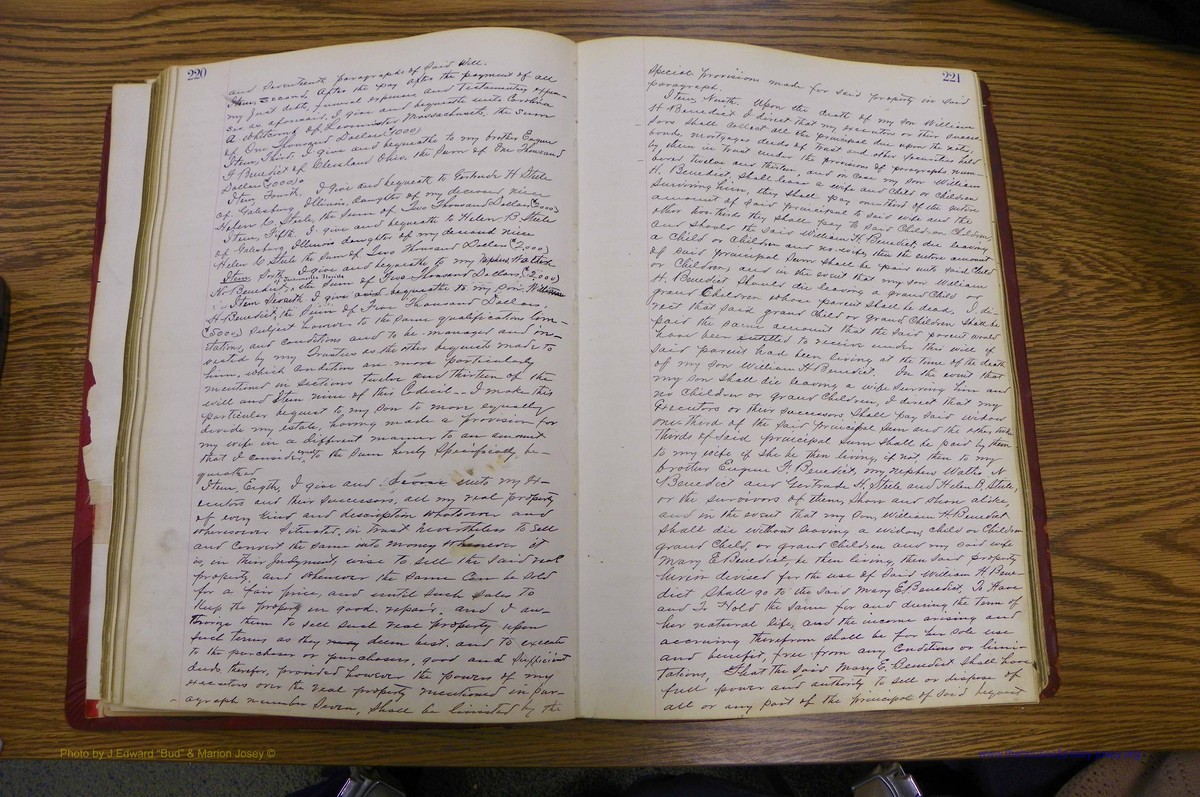 220
and Seventeenth paragraphs of said Will.
Item, Second, After the pay after the payment of all
my just debt, funeral expenses and Testamentary expen-
ses as aforesaid, I give and bequeathe unto Caroline
A Whitcomb of Leominster Massachusetts, the sum
of One Thousand Dollars (1000)
Item, Third, I give and bequeathe to my brother Eugene
F Benedict of Cleveland Ohio, the sum of One Thousand
Dollars (1000)
Item, Fourth, I give and bequeathe to Gertrude H Stele
of Galesburg Illinois, daughter of my deceased niece
Helen C. Stele, the Sum of Two Thousand Dollars (2000)
Item, Fifth, I give and bequeathe to Helen B. Stele
of Galesburg Illinois daughter of my deceased niece
Helen C Stele the Sum of Two Thousand Dollars (2,000)
Item, Sixth, I give and bequeathe to my nephew Walter
N. Benedict, of Florida the Sum of Two Thousand Dollars, ($2,000)
Item Seventh I give and bequeathe to my Son, William
H. Benedict, the Sum of Five Thousand Dollars,
(5000) Subject however to the same qualifications limi-
tations, and conditions and to be managed and in-
vested by my Trustees as the other bequests made to
him, which conditions are more particularly
mentioned in sections Twelve and thirteen of the
will and Item nine of this Codicil -- I make this
particular bequest to my Son to more equally
divide my estate, having made a provision for
my wife in a different manner to an amount
that I consider, unto the Sum hereby Specifically be-
queathed
Item Eigth, I give and devise unto my Ex-
ecutors and their Successors, all my real property
of every kind and description whatsoever and
wheresoever Situated, in trust nevertheless to sell
and convert the same into money whenever it
is, in their judgment, wise to sell the said real
property, and whenever the same can be sold
for a fair price, and until such sales to
Keep the property in good repair, and I au-
thorize them to sell such real property upon
such terms as they may deem best, and to execute
to the purchaser or purchasers, good and sufficient
deeds therefor, provided however the powers of my
executors over the real property mentioned in par-
agraph number Seven, Shall be limited by the
221
Special Provisions made for said property in said
paragraph.
Item, Ninth, Upon the death of my son William
H Benedict I direct that my executors or their succes-
sors shall collect all the principal due upon the notes,
bonds, mortgages deeds of trust and other securities held
by them in trust under the provisions of paragraphs num-
bered twelve and thirteen, and in case my son William
H. Benedict, shall leave a wife and child or children
surviving him, they shall pay one third of the entire
amount of said principal to said wife and the
other two thirds they shall pay to said child or children,
and should the said William H. Benedict, die leaving
a child or children and no wife, then the entire amount
of said principal sum shall be paid unto said child
or children, and in the event that my son William
H. Benedict should die leaving a grand child or
grand children whose parent shall be dead, I di-
rect that said grand child or grand children shall be
paid the same amount that the said parent would
have been entitled to receive under this will if
said parent had been living at the time of the death
of my son William H. Benedict. In the event that
my son shall die leaving a wife surviving him and
no children or grand children, I direct that my
Executors or their successors shall pay said widow
one third of the said principal sum and the other two
thirds of said principal sum shall be paid by them
to my wife if she be then living, if not, then to my
brother Eugene F. Benedict, my nephew Walter N
Benedict and Gertrude H. Stele and Helen B. Stele,
or the survivors of them, share and share alike,
and in the event that my Son, William H. Benedict
shall die without leaving a widow, child or children
grand child, or grand children and my said wife
Mary E. Benedict, be then living, then said property
herein devised for the use of said William H. Bene-
dict shall go to the said Mary E. Benedict, To Have
and To Hold the same for and during the term of
her natural life, and the income arising and
accruing therefrom shall be for her sole use
and benefit, free from any conditions or limi-
tations, that the said Mary E. Benedict shall have
full power and authority to sell or dispose of
all or any part of the principal of said bequest
Photo by J Edward "Bud" & Marion Josey ©